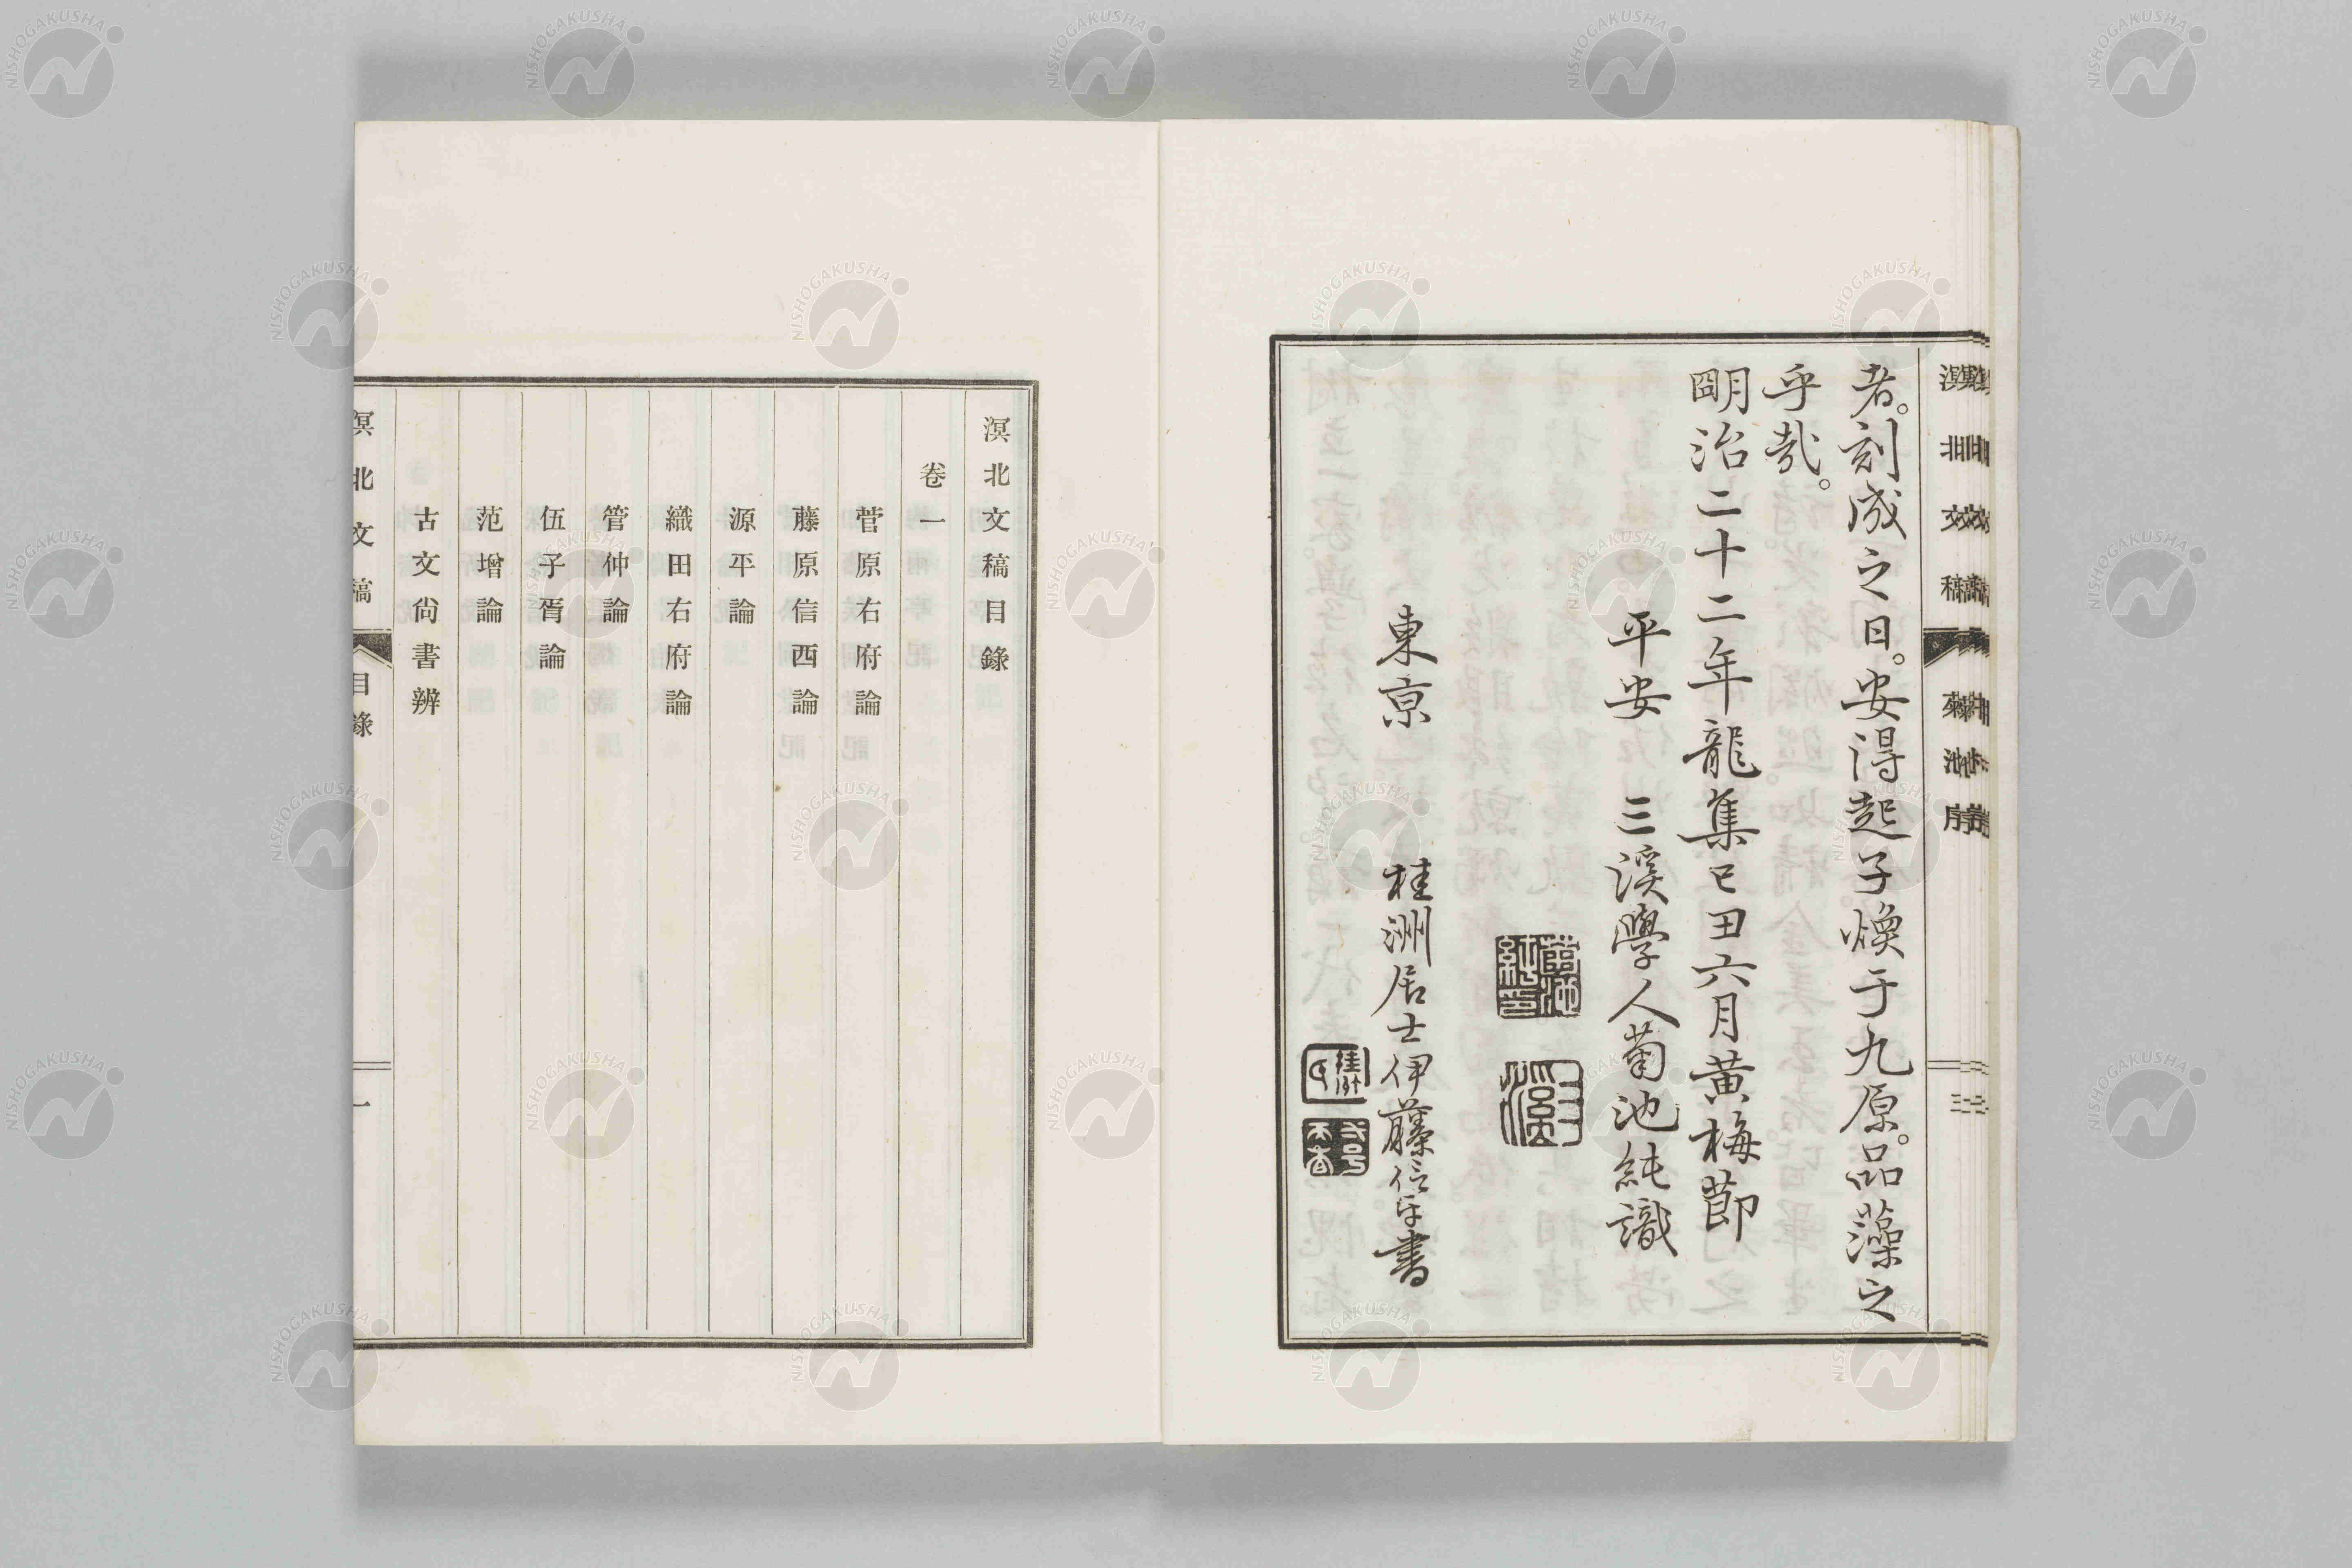 溟北文稿
菊池序
三
者。刻成之日。安得起子煥于九原。品藻之
乎哉。
明治二十二年龍集己田六月黄梅節
平安 三溪學人菊池純識
東京 桂洲居士伊藤信平書
溟北文稿目錄
卷一
菅原右府論
藤原信西論
源平論
織田右府論
管仲論
伍子胥論
范增論
古文尙書辨
溟北文稿
目錄
一
NISHOGAKUSHA